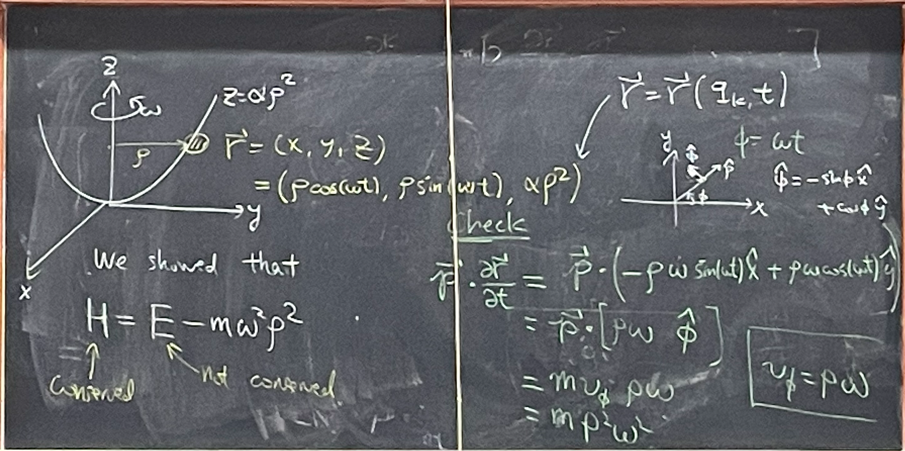 z
ω
z=αρ²
ρ
r⃗ = (x, y, z)
= (ρcos(ωt), ρsin(ωt), αρ²)
y
x
We showed that
H = E − mω²ρ²
conserved
not conserved
r⃗ = r⃗(q_k, t)
y
φ = ωt
φ̂
ρ̂
φ
x
φ̂ = −sinφ x̂
+ cosφ ŷ
Check
p⃗ · ∂r⃗/∂t = p⃗ · (−ρω sin(ωt) x̂ + ρω cos(ωt) ŷ)
= p⃗ · [ρω φ̂]
= m v_φ ρω
= mρ²ω²
v_φ = ρω